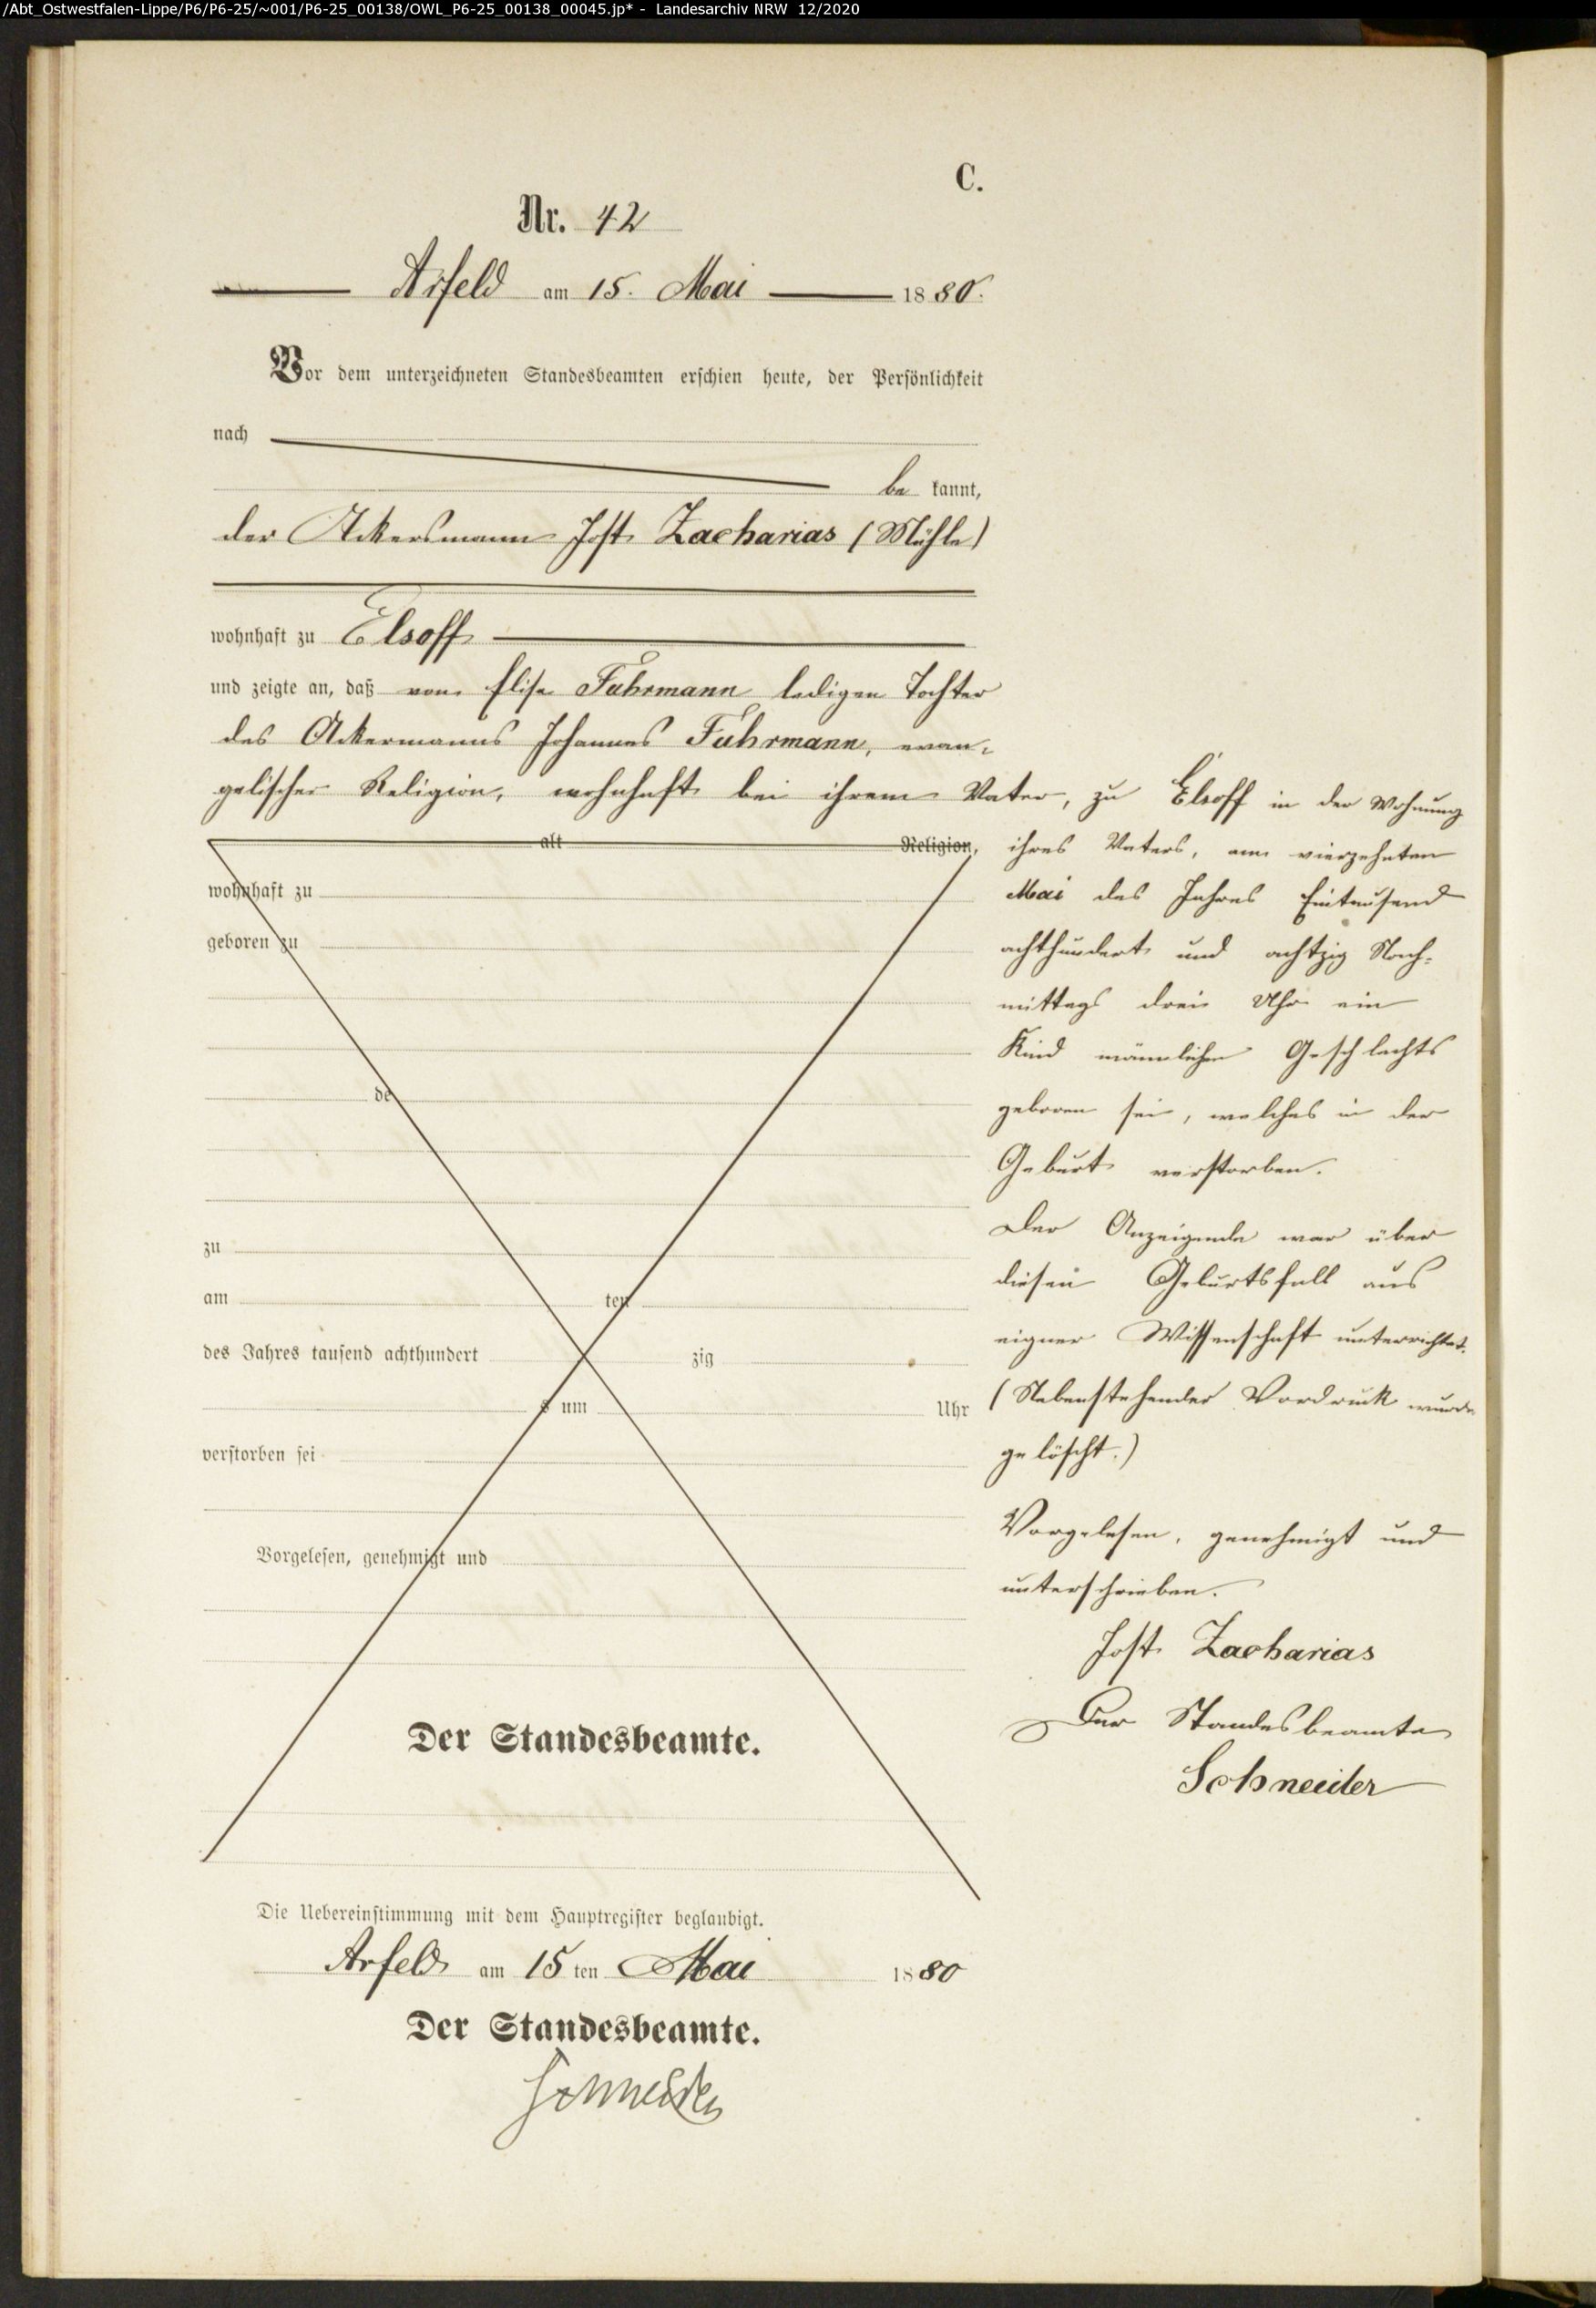 /Abt_Ostwestfalen-Lippe/P6/P6-25/~001/P6-25_00138/OWL_P6-25_00138_00045.jp* - Landesarchiv NRW 12/2020
C.
Nr. 42
Arfeld am 15. Mai 1880.
Vor dem unterzeichneten Standesbeamten erschien heute, der Persönlichkeit
nach
be kannt,
der Ackersmann Jost Zacharias (Mühle)
wohnhaft zu Elsoff
und zeigte an, daß von Elise Fuhrmann ledigen Tochter
des Ackermanns Johannes Fuhrmann, evan-
gelischer Religion, wohnhaft bei ihrem Vater, zu Elsoff in der Wohnung
alt Religion,
wohnhaft zu
geboren zu
de
zu
am ten
des Jahres tausend achthundert zig
s um Uhr
verstorben sei
Vorgelesen, genehmigt und
Der Standesbeamte.
ihres Vaters, am vierzehnten
Mai des Jahres Eintausend
achthundert und achtzig Nach-
mittags drei Uhr ein
Kind männlichen Geschlechts
geboren sei, welches in der
Geburt verstorben.
Der Anzeigende war über
diesen Geburtsfall aus
eigner Wissenschaft unterrichtet.
(Nebenstehender Vordruck wurde
gelöscht.)
Vorgelesen, genehmigt und
unterschrieben.
Jost Zacharias
Der Standesbeamte
Schneider
Die Uebereinstimmung mit dem Hauptregister beglaubigt.
Arfeld am 15 ten Mai 1880
Der Standesbeamte.
Schneider